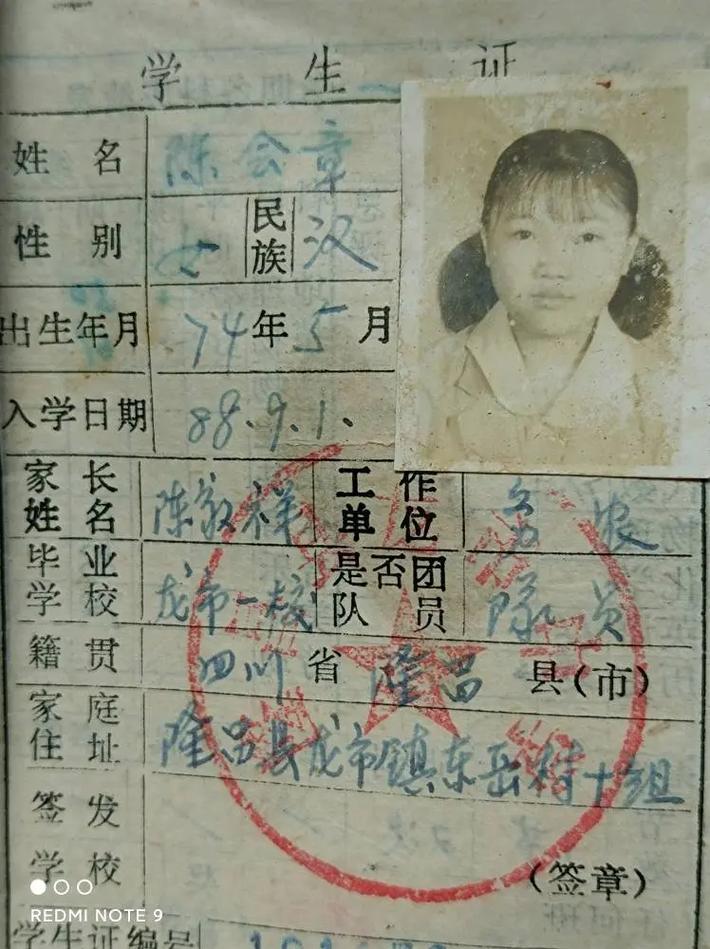 学生证
姓名 陈会章
性别 女 民族 汉
出生年月 74年5月
入学日期 88.9.1.
家长姓名 陈敦祥 工作单位 务农
毕业学校 龙市一校 是否团队员 队员
籍贯 四川省隆昌县(市)
家庭住址 隆昌县龙市镇东岳村十组
签发学校 (签章)
REDMI NOTE 9
学生证编号